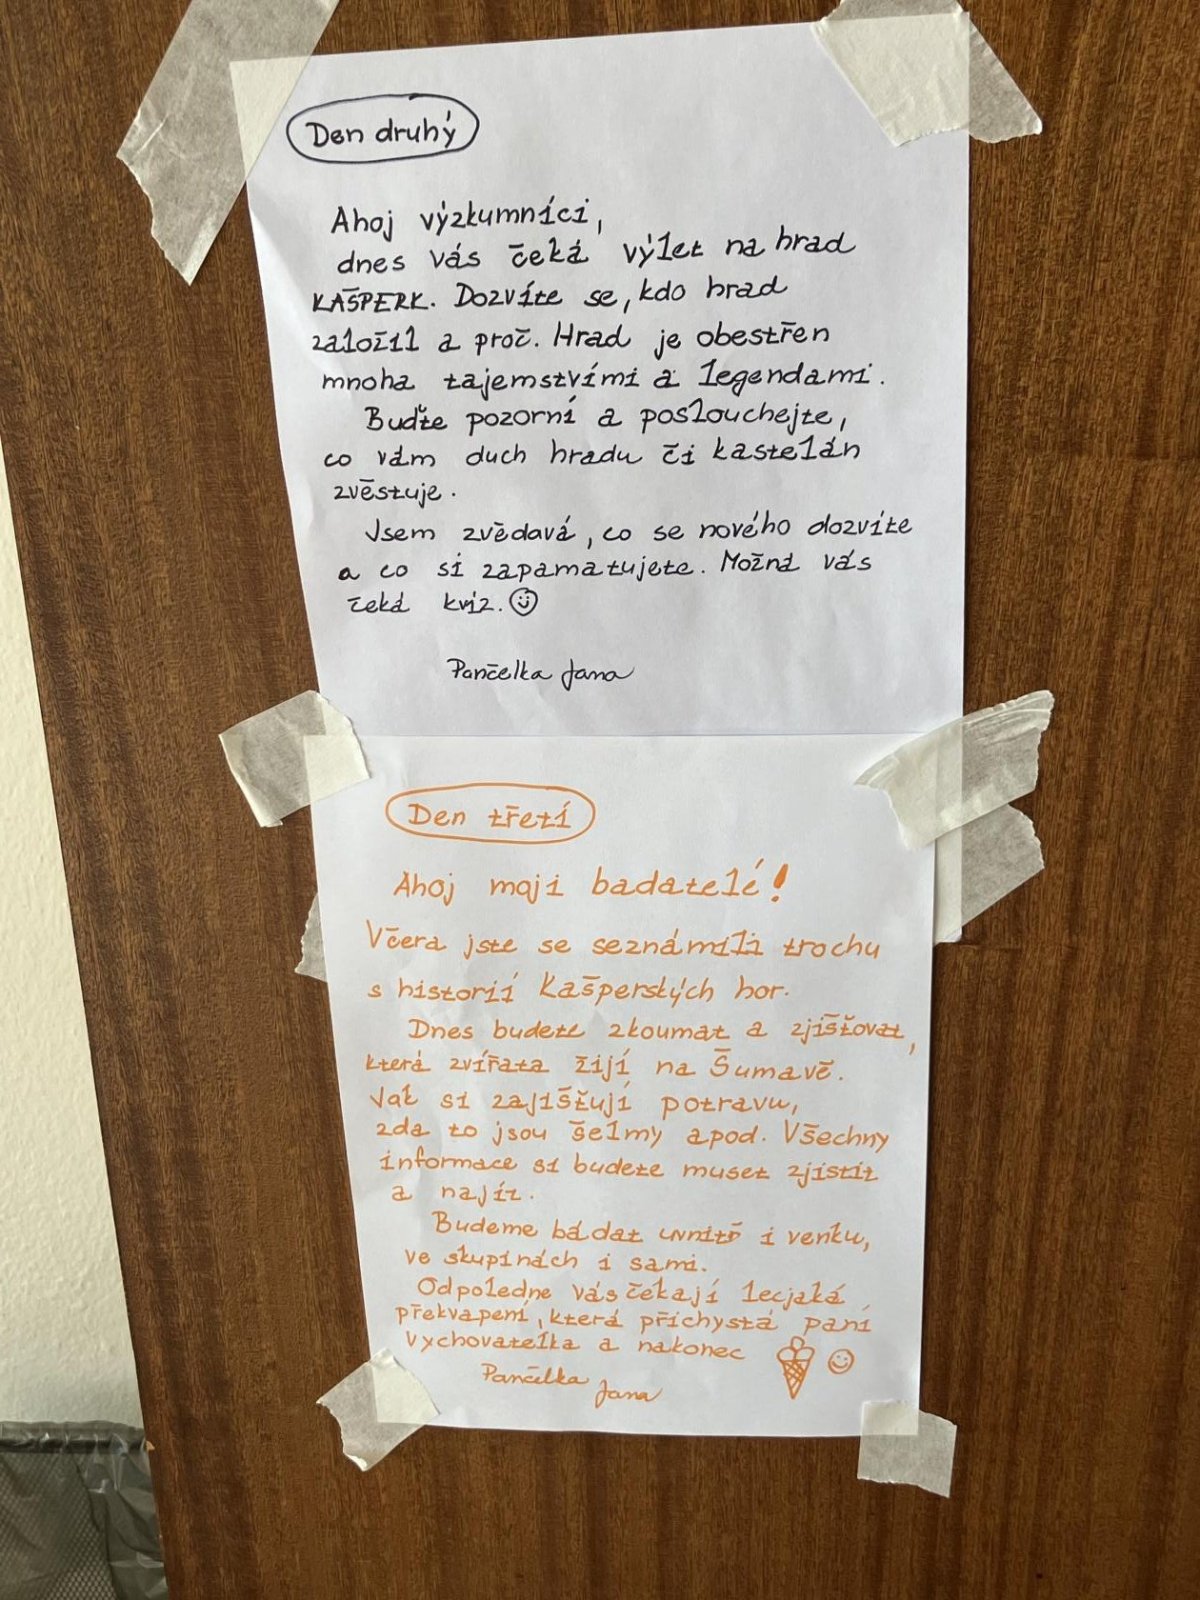 Den druhý
Ahoj výzkumníci,
dnes vás čeká výlet na hrad
KAŠPERK. Dozvíte se, kdo hrad
založil a proč. Hrad je obestřen
mnoha tajemstvími a legendami.
Buďte pozorní a poslouchejte,
co vám duch hradu či kastelán
zvěstuje.
Jsem zvědavá, co se nového dozvíte
a co si zapamatujete. Možná vás
čeká kvíz.
Pančelka Jana
Den třetí
Ahoj moji badatelé!
Včera jste se seznámili trochu
s historií Kašperských hor.
Dnes budete zkoumat a zjišťovat,
která zvířata žijí na Šumavě.
Jak si zajišťují potravu,
zda to jsou šelmy apod. Všechny
informace si budete muset zjistit
a najít.
Budeme bádat uvnitř i venku,
ve skupinách i sami.
Odpoledne vás čekají lecjaká
překvapení, která přichystá paní
vychovatelka a nakonec
Pančelka Jana